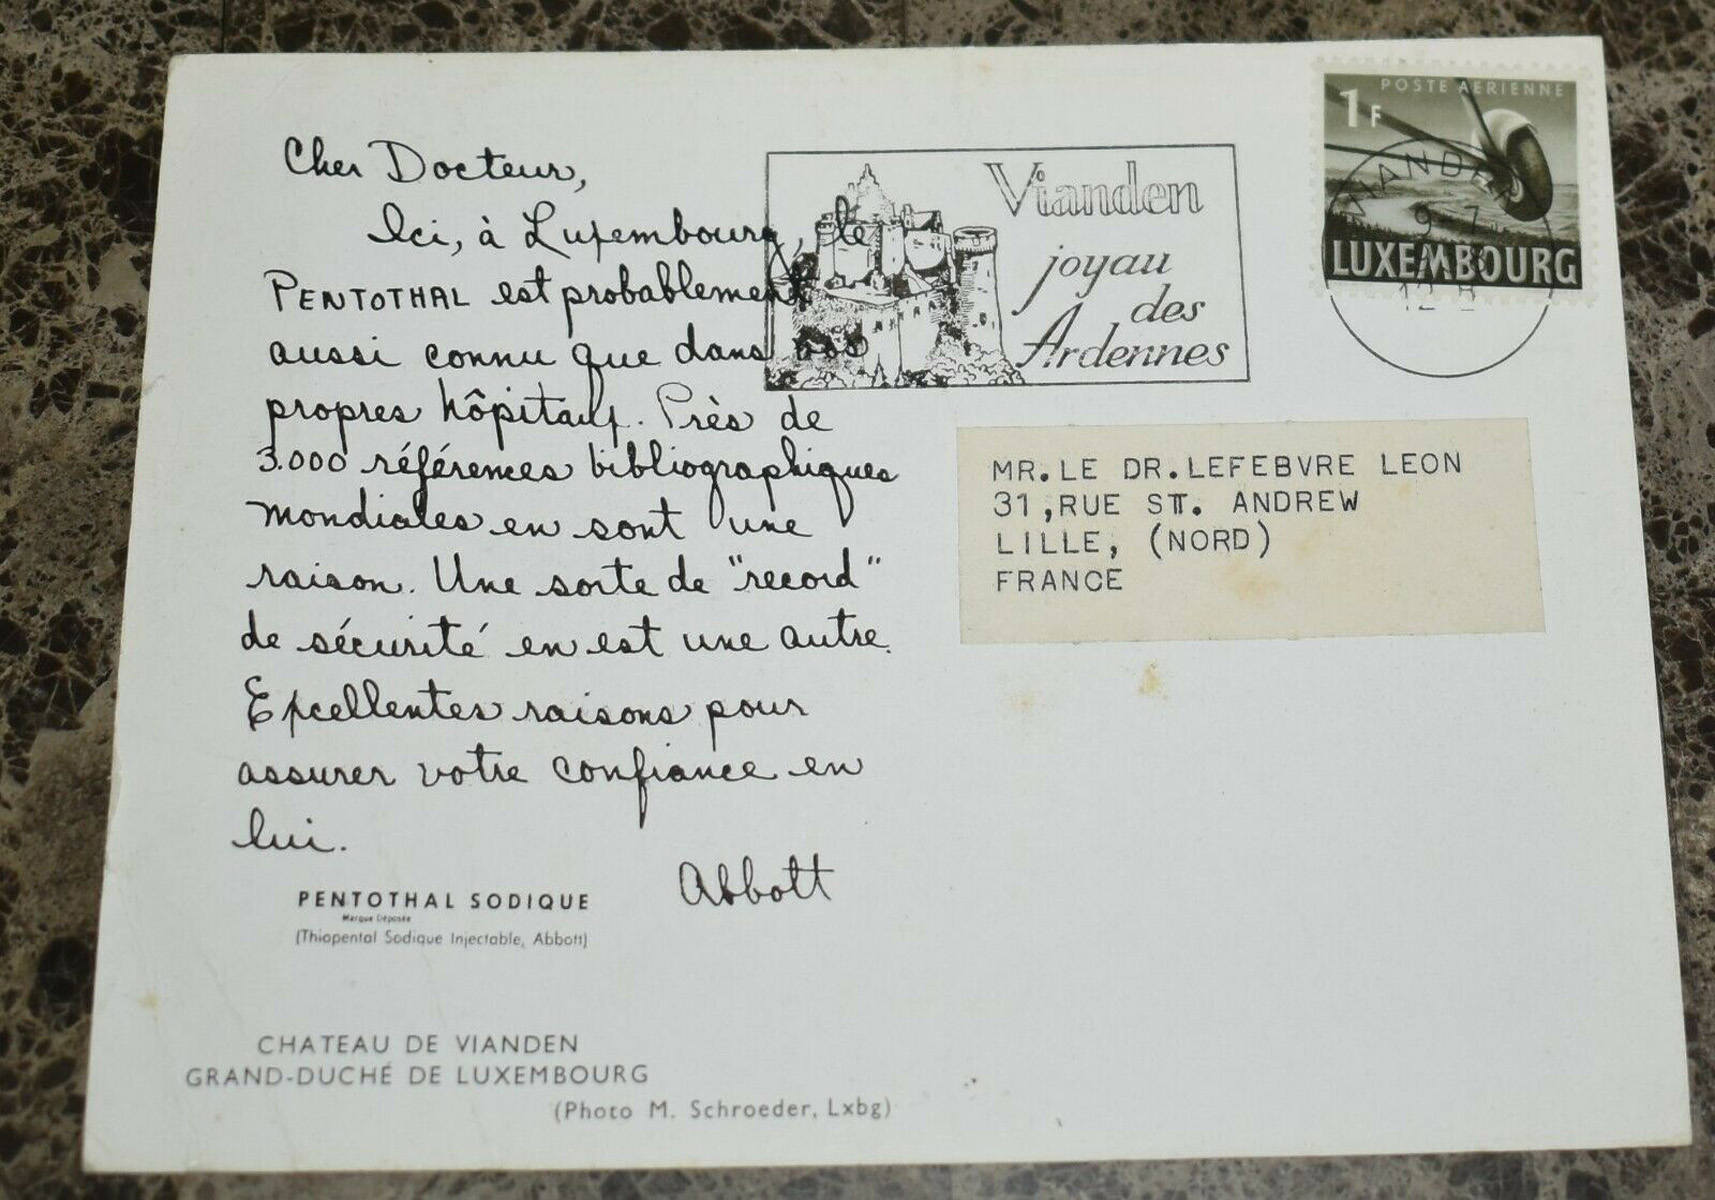 Cher Docteur,
Ici, à Luxembourg, le
PENTOTHAL est probablement
aussi connu que dans vos
propres hôpitaux. Près de
3.000 références bibliographiques
mondiales en sont une
raison. Une sorte de "record"
de sécurité en est une autre.
Excellentes raisons pour
assurer votre confiance en
lui.
Abbott
PENTOTHAL SODIQUE
Marque Déposée
(Thiopental Sodique Injectable, Abbott)
CHATEAU DE VIANDEN
GRAND-DUCHÉ DE LUXEMBOURG
(Photo M. Schroeder, Lxbg)
Vianden
joyau
des
Ardennes
POSTE AÉRIENNE
1F
LUXEMBOURG
VIANDEN
9-7
12 H
MR.LE DR.LEFEBVRE LEON
31,RUE ST. ANDREW
LILLE, (NORD)
FRANCE